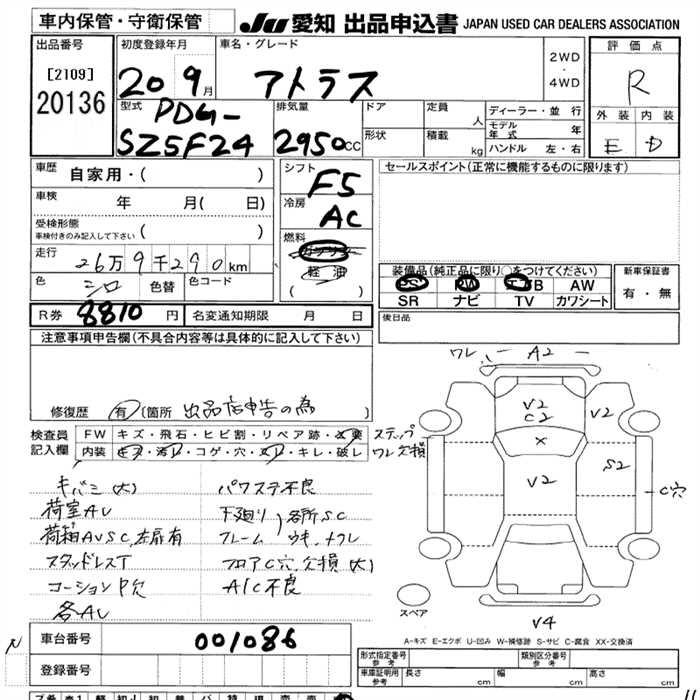 車内保管・守衛保管
JU 愛知 出品申込書 JAPAN USED CAR DEALERS ASSOCIATION
出品番号
[2109]
20136
初度登録年月
20 9月
車名・グレード
アトラス
2WD
・
4WD
評価点
R
外装 内装
E D
型式
PDG-
SZ5F24
排気量
2950cc
ドア
形状
定員 人
積載 kg
ディーラー・並行
モデル年式 年
ハンドル 左・右
車歴
自家用・( )
車検
年 月( 日)
受検形態
車検付きのみ記入して下さい ( )
走行
26万9千290km
色 シロ 色替 色コード
シフト
F5
冷房
AC
燃料
ガソリン
軽油
( )
セールスポイント(正常に機能するものに限ります)
装備品(純正品に限り○をつけてください)
PS PW エアB AW
SR ナビ TV カワシート
新車保証書
有・無
R券 8810円 名変通知期限 月 日
後日品
注意事項申告欄(不具合内容等は具体的に記入して下さい)
修復歴 有 [箇所 出品店申告の為 ]
検査員
記入欄
FW キズ・飛石・ヒビ割・リペア跡・
内装 キズ・汚レ・コゲ・穴・スレ・キレ・破レ
キバミ(大) パワステ不良
荷室AU 下廻り 各所SC
荷箱AUSC,左扉有 フレーム
スタッドレスT フロアC穴,欠損(大)
コーションP欠 A/C不良
各AU
ワレ A2
V2
C2
V2
X
ステップ
ワレ欠損
V2
S2
C穴
スペア
V4
A-キズ E-エクボ U-凹み W-補修跡 S-サビ C-腐食 XX-交換済
車台番号 001086
登録番号
型式指定番号
参考
類別区分番号
参考
車庫証明用
参考
長さ cm 幅 cm 高さ cm